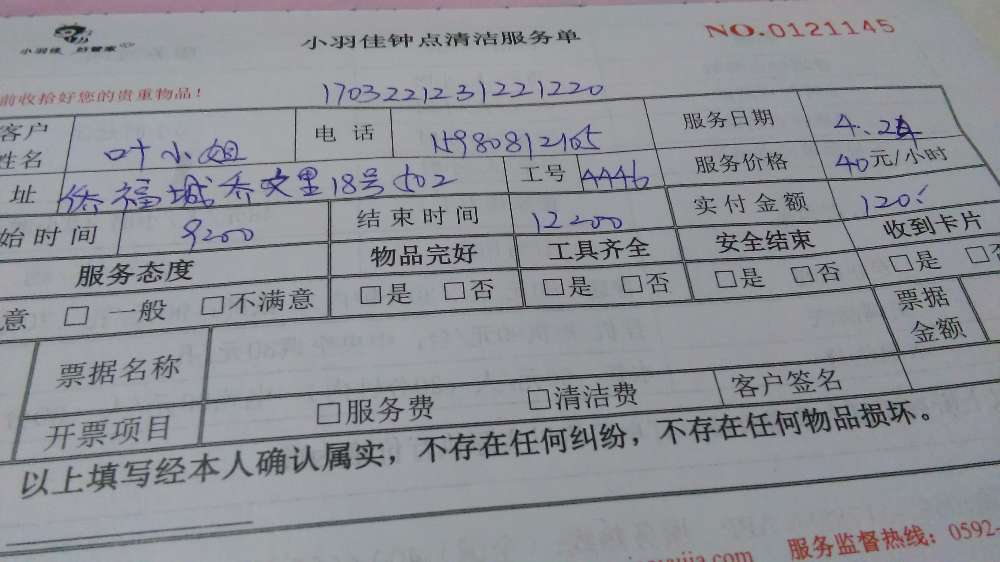 小羽佳 好管家
小羽佳钟点清洁服务单
NO.0121145
前收拾好您的贵重物品！
1703221231221220
客户姓名 叶小姐 电话 15980812165 服务日期 4.24
址 侨福城乔文里18号502 工号 AA46 服务价格 40元/小时
始时间 9:00 结束时间 12:00 实付金额 120
服务态度 物品完好 工具齐全 安全结束 收到卡片
意 □ 一般 □不满意 □是 □否 □是 □否 □是 □否 □是 □否
票据名称 票据金额
开票项目 □服务费 □清洁费 客户签名
以上填写经本人确认属实，不存在任何纠纷，不存在任何物品损坏。
服务监督热线：0592-